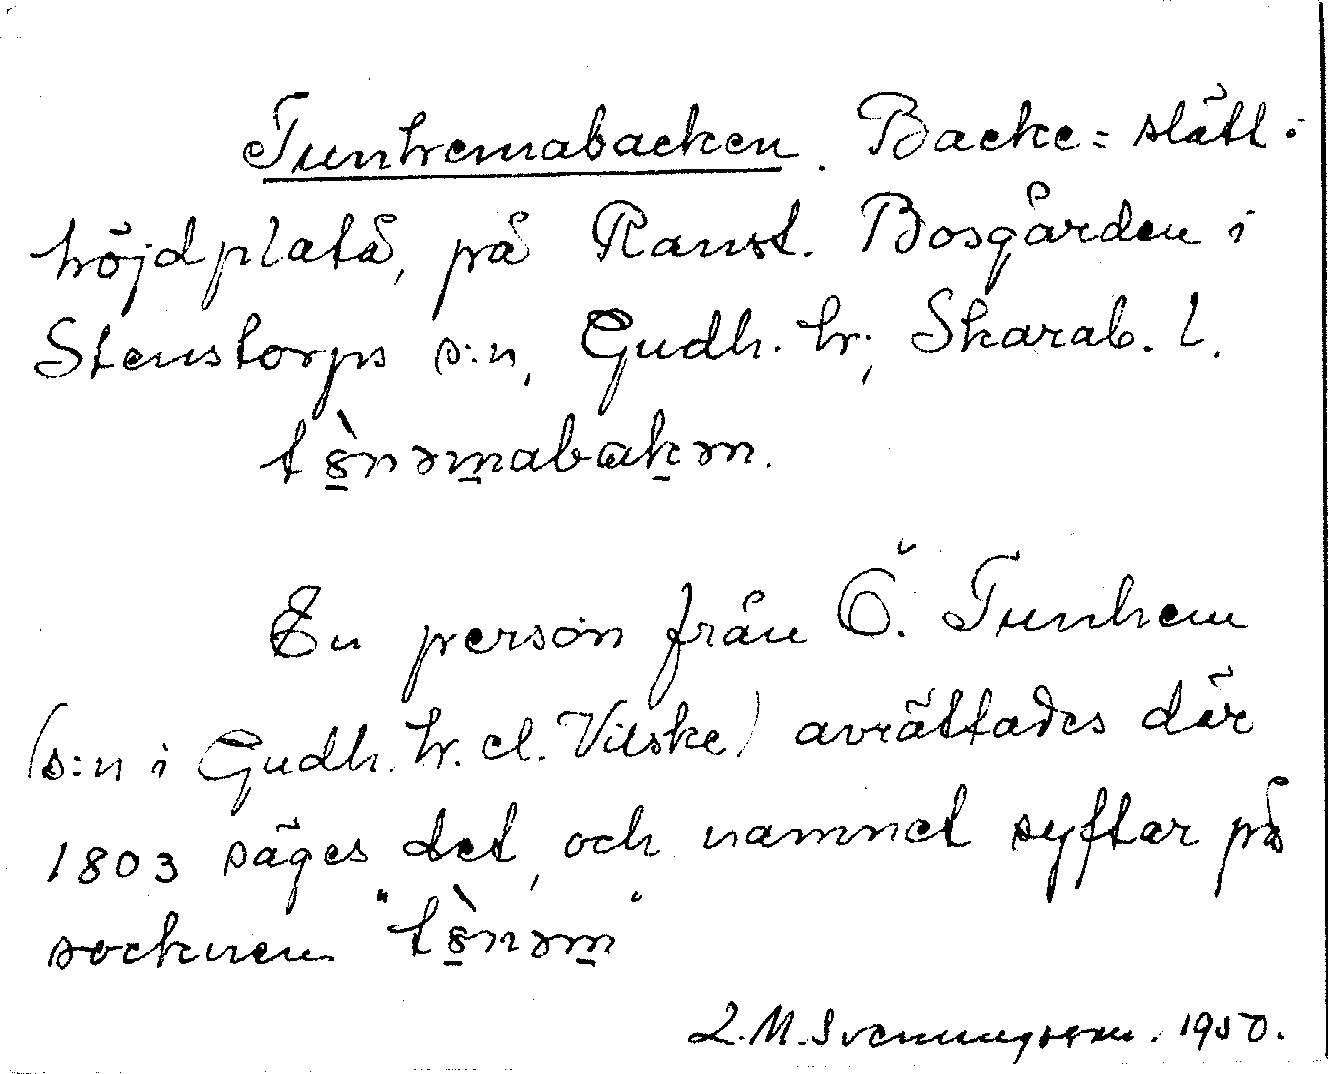 Tunhemabacken. Backe= slätt.
höjdplatå, på Ranst. Bosgården i
Stenstorps s:n, Gudh. hr; Skarab. l.
tȣ̀nəmabakən.
En person från Ö. Tunhem
(s:n i Gudh. hr. el. Vilske) avrättades där
1803 säges det, och namnet syftar på
socknen "tȣ̀nəm"
L.M. Svenungsson. 1950.